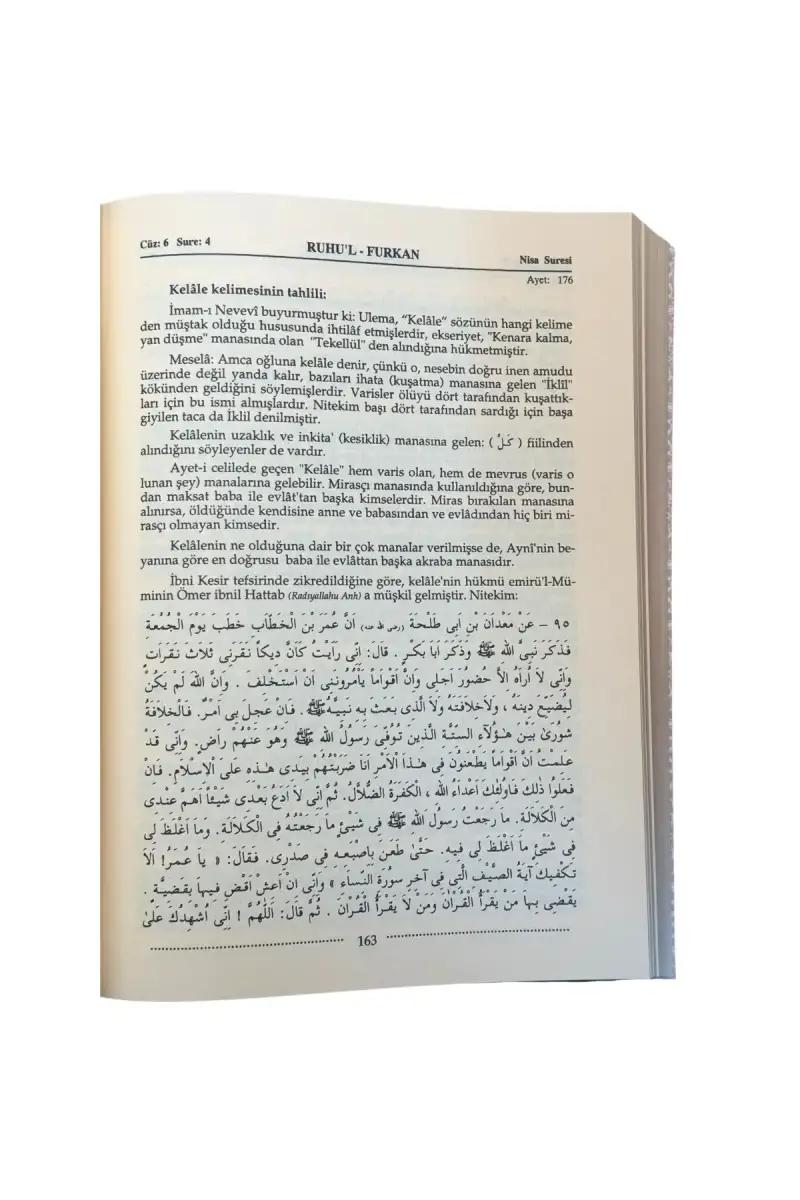 Cüz: 6 Sure: 4
RUHU'L - FURKAN
Nisa Suresi
Ayet: 176
Kelâle kelimesinin tahlili:
İmam-ı Nevevî buyurmuştur ki: Ulema, "Kelâle" sözünün hangi kelime
den müştak olduğu hususunda ihtilâf etmişlerdir, ekseriyet, "Kenara kalma,
yan düşme" manasında olan "Tekellül" den alındığına hükmetmiştir.
Meselâ: Amca oğluna kelâle denir, çünkü o, nesebin doğru inen amudu
üzerinde değil yanda kalır, bazıları ihata (kuşatma) manasına gelen "İklîl"
kökünden geldiğini söylemişlerdir. Varisler ölüyü dört tarafından kuşattık-
ları için bu ismi almışlardır. Nitekim başı dört tarafından sardığı için başa
giyilen taca da İklil denilmiştir.
Kelâlenin uzaklık ve inkita' (kesiklik) manasına gelen: ( كَلَّ ) fiilinden
alındığını söyleyenler de vardır.
Ayet-i celilede geçen "Kelâle" hem varis olan, hem de mevrus (varis o
lunan şey) manalarına gelebilir. Mirasçı manasında kullanıldığına göre, bun-
dan maksat baba ile evlât'tan başka kimselerdir. Miras bırakılan manasına
alınırsa, öldüğünde kendisine anne ve babasından ve evlâdından hiç biri mi-
rasçı olmayan kimsedir.
Kelâlenin ne olduğuna dair bir çok manalar verilmişse de, Aynî'nin be-
yanına göre en doğrusu baba ile evlâttan başka akraba manasıdır.
İbni Kesir tefsirinde zikredildiğine göre, kelâle'nin hükmü emirü'l-Mü-
minin Ömer ibnil Hattab (Radıyallahu Anh) a müşkil gelmiştir. Nitekim:
٩٥ – عَنْ مَعْدَانَ بْنِ اَبِى طَلْحَةَ (رضى الله عنه) اَنَّ عُمَرَ بْنَ الْخَطَّابِ خَطَبَ يَوْمَ الْجُمُعَةِ
فَذَكَرَ نَبِىَّ اللهِ ﷺ وَذَكَرَ اَبَا بَكْرٍ . قَالَ: اِنِّى رَاَيْتُ كَاَنَّ دِيكًا نَقَرَنِى ثَلَاثَ نَقَرَاتٍ
وَاِنِّى لَا اُرَاهُ اِلاَّ حُضُورَ اَجَلِى وَاِنَّ اَقْوَامًا يَأْمُرُونَنِى اَنْ اَسْتَخْلِفَ . وَاِنَّ اللهَ لَمْ يَكُنْ
لِيُضَيِّعَ دِينَهُ ، وَلاَخِلاَفَتَهُ وَلاَ الَّذِى بَعَثَ بِهِ نَبِيَّهُ ﷺ . فَاِنْ عَجِلَ بِى اَمْرٌ. فَالْخِلاَفَةُ
شُورَى بَيْنَ هٰؤُلَآءِ السِّتَّةِ الَّذِينَ تُوُفِّىَ رَسُولُ اللهِ ﷺ وَهُوَ عَنْهُمْ رَاضٍ. وَاِنِّى قَدْ
عَلِمْتُ اَنَّ اَقْوَامًا يَطْعَنُونَ فِى هٰذَا الْاَمْرِ اَنَا ضَرَبْتُهُمْ بِيَدِى هٰذِهِ عَلَى الْاِسْلاَمِ. فَاِنْ
فَعَلُوا ذٰلِكَ فَاُولٰئِكَ اَعْدَاءُ اللهِ ، الْكَفَرَةُ الضُّلاَّلُ. ثُمَّ اِنِّى لَا اَدَعُ بَعْدِى شَيْئًا اَهَمَّ عِنْدِى
مِنَ الْكَلَالَةِ. مَا رَجَعْتُ رَسُولَ اللهِ ﷺ فِى شَيْئٍ مَا رَجَعْتُهُ فِى الْكَلَالَةِ. وَمَا اَغْلَظَ لِى
فِى شَيْئٍ مَا اَغْلَظَ لِى فِيهِ. حَتَّى طَعَنَ بِاِصْبَعِهِ فِى صَدْرِى. فَقَالَ: « يَا عُمَرُ! اَلَا
تَكْفِيكَ آيَةُ الصَّيْفِ الَّتِى فِى آخِرِ سُورَةِ النِّسَاءِ » وَاِنِّى اِنْ اَعِشْ اَقْضِ فِيهَا بِقَضِيَّةٍ .
يَقْضِى بِهَا مَنْ يَقْرَأُ الْقُرْآنَ وَمَنْ لَا يَقْرَأُ الْقُرْآنَ . ثُمَّ قَالَ: اَللّٰهُمَّ ! اِنِّى اُشْهِدُكَ عَلٰى
163